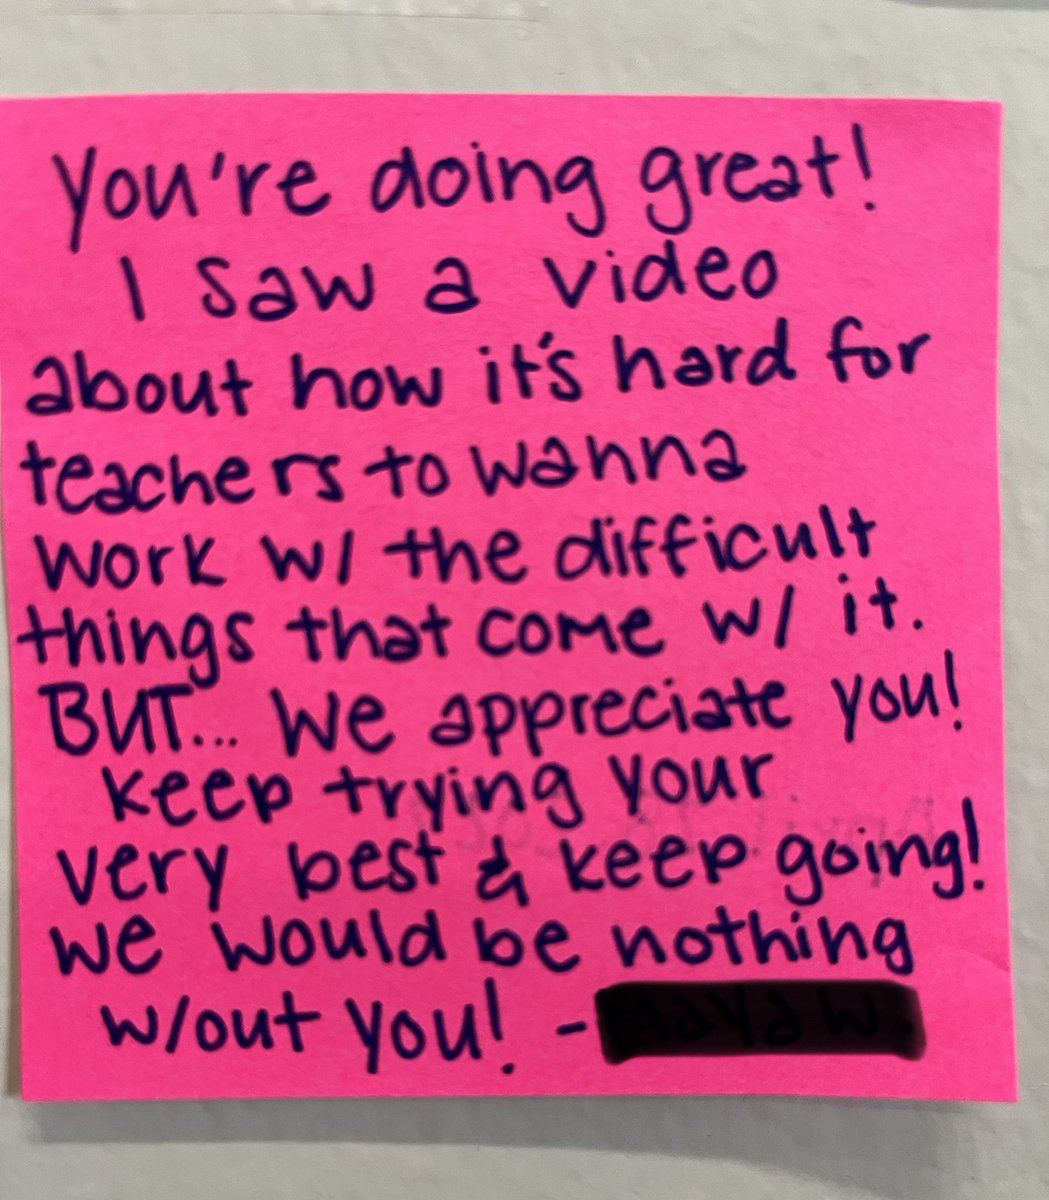 You're doing great!
I saw a video
about how it's hard for
teachers to wanna
work w/ the difficult
things that come w/ it.
BUT... we appreciate you!
keep trying your
very best & keep going!
we would be nothing
w/out you! -